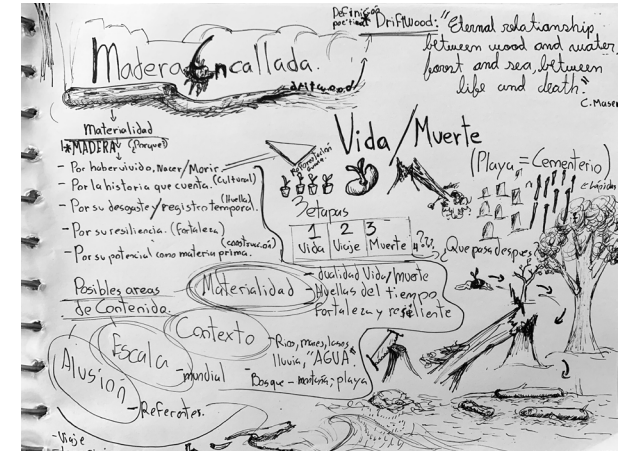 Definición
poética
*Driftwood: "Eternal relationship
between wood and water,
forest and sea, between
life and death."
Madera Encallada.
driftwood
Materialidad
*MADERA (Porque?)
- Por haber vivido, Nacer/Morir
- Por la historia que cuenta. (Cultural)
- Por su desgaste/registro temporal. (Huella)
- Por su resiliencia. (Fortaleza)
- Por su potencial como materia prima. (construcción)
Vida/Muerte
(Playa = Cementerio)
3 etapas
1 2 3
Vida Viaje Muerte
¿Que pasa despues?
Posibles areas
de Contenido.
Materialidad
- dualidad Vida/Muerte
- Huellas del tiempo
Fortaleza y resiliente
Contexto
- Rios, mares, lagos,
lluvia, "AGUA".
- Bosque - montaña; playa
Escala
- mundial
Alusión
- Referentes.
- Viaje